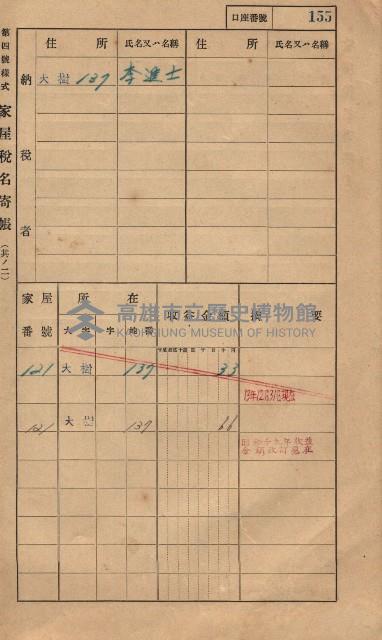 口座番號 155
第四號樣式 家屋稅名寄帳 (其ノ二)
納稅者
住所 氏名又ハ名稱 住所 氏名又ハ名稱
大樹 137 李進士
家屋番號 所在 收益金額 摘要
大字 字 地番
高雄市立歷史博物館
KAOHSIUNG MUSEUM OF HISTORY
121 大樹 137 33
121 大樹 137 66
昭和十九年收益
金額改訂現在